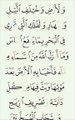 وَالْأَرْضِ وَاخْتِلَافِ اللَّيْلِ
وَالنَّهَارِ وَالْفُلْكِ الَّتِي تَجْرِي
فِي الْبَحْرِ بِمَا يَنفَعُ النَّاسَ
وَمَا أَنزَلَ اللَّهُ مِنَ السَّمَاءِ
مِن مَّاءٍ فَأَحْيَا بِهِ الْأَرْضَ بَعْدَ
مَوْتِهَا وَبَثَّ فِيهَا مِن كُلِّ
دَابَّةٍ وَتَصْرِيفِ الرِّيَاحِ